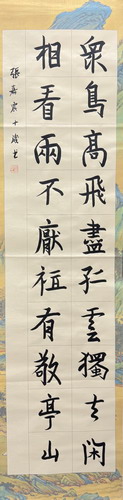 衆鳥高飛盡孤雲獨去閑
相看兩不厭祗有敬亭山
張嘉宸十歲書